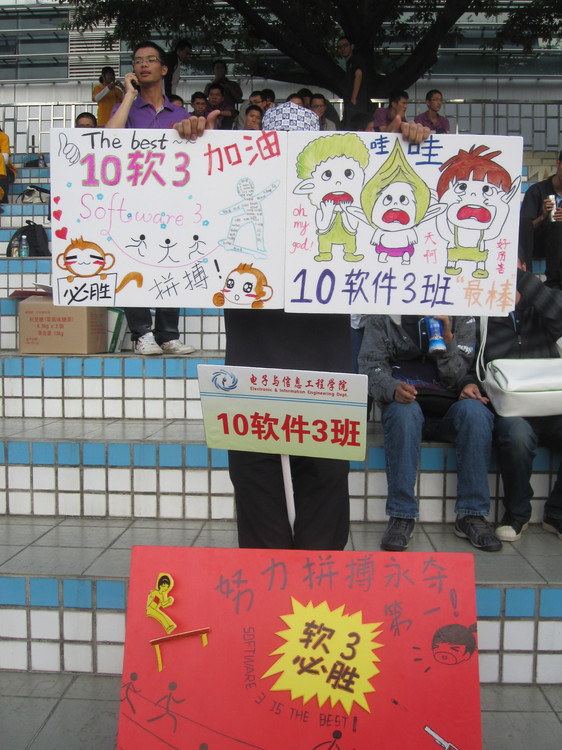 The best~
10软3 加油
Software 3
拼搏!
必胜
哇 哇
oh my god!
天柯
好厉害
10软件3班 "最棒
电子与信息工程学院
Electronic & Information Engineering Dept.
10软件3班
努力拼搏永夺
第一!
软3
必胜
SOFTWARE 3 IS THE BEST!